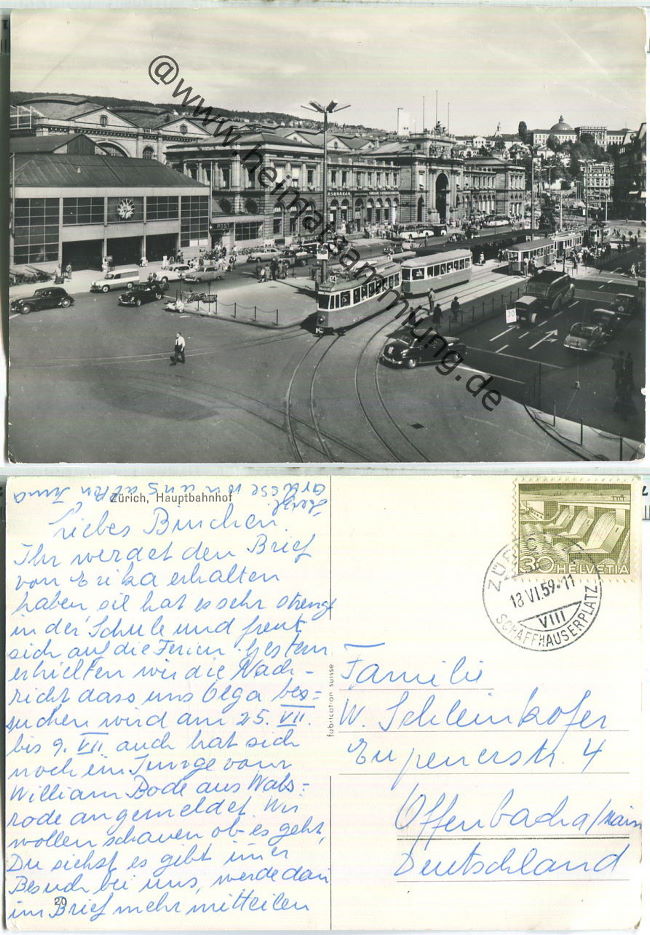 @www.heimatsammlung.de
Zürich, Hauptbahnhof
herzl.
Grüsse von uns allen Irma
Liebes Binchen.
Ihr werdet den Brief
von Erika erhalten
haben sie hat es sehr streng
in der Schule und freut
sich auf die Ferien. Gestern
erhielten wir die Nach-
richt dass uns Olga be=
suchen wird am 25. VII.
bis 9. VII. auch hat sich
noch ein Junge vom
William Bode aus Wals=
rode angemeldet. Wir
wollen schauen ob es geht,
Du siehst es gibt imer
Besuch bei uns, werde dan
im Brief mehr mitteilen
20
fabrication suisse
30 HELVETIA
ZÜRICH
13.VI.59-11
VIII
SCHAFFHAUSERPLATZ
Familie
W. Schleinkofer
Eupenerstr. 4
Offenbach a/Main
Deutschland